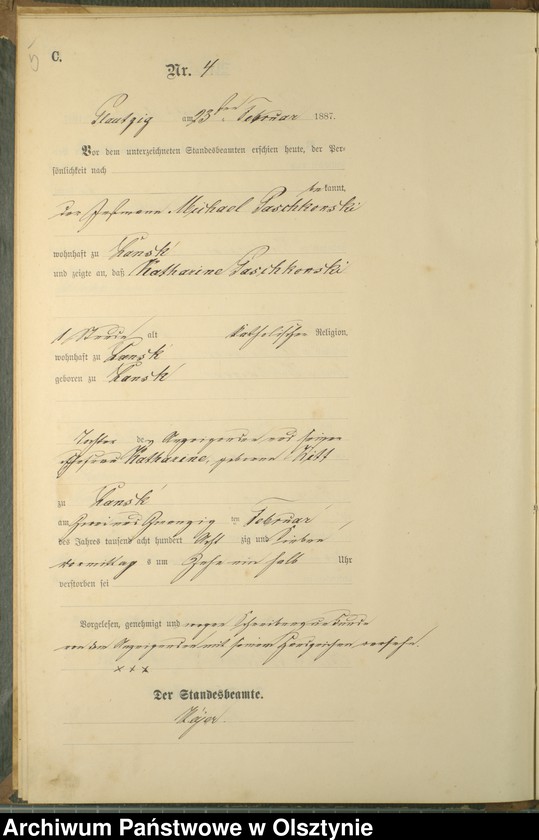 5
C.
Nr. 4
Plautzig am 23ten Februar 1887.
Vor dem unterzeichneten Standesbeamten erschien heute, der Per-
sönlichkeit nach
bekannt,
der Michael Paschkonski
wohnhaft zu Lansk
und zeigte an, daß Katharine Paschkonski
1 Stunde alt katholischer Religion,
wohnhaft zu Lansk
geboren zu Lansk
Tochter des Anzeigenden und seiner
Ehefrau Katharine, geborene Kitt
zu Lansk
am zwei und zwanzigsten Februar
des Jahres tausend acht hundert achtzig und sieben
Vormittags um zehn ein halb Uhr
verstorben sei
Vorgelesen, genehmigt und wegen Schreibensunkunde
von dem Anzeigenden mit seinem Handzeichen versehen.
+ + +
Der Standesbeamte.
Archiwum Państwowe w Olsztynie